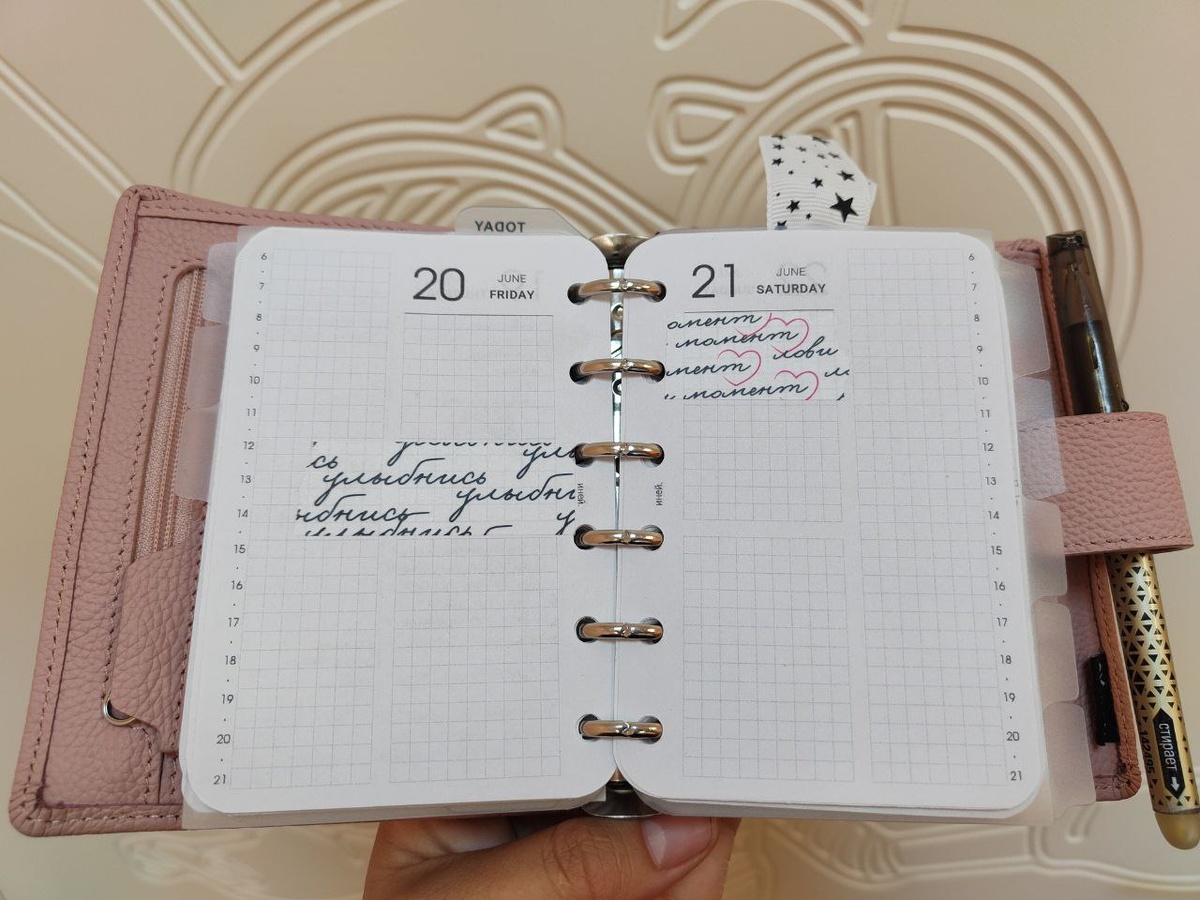 TODAY
20 JUNE
FRIDAY
6
7
8
9
10
11
12
13
14
15
16
17
18
19
20
21
сь
улыбнись
улыбни
ыбнись
улыбнись
иней.
21 JUNE
SATURDAY
омент
момент
лови
мент
момент
иней.
6
7
8
9
10
11
12
13
14
15
16
17
18
19
20
21
стирает